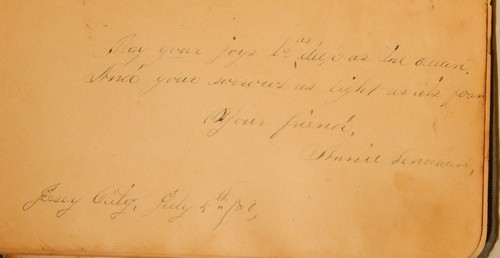 May your joys be as deep as the ocean,
And your sorrows as light as its foam
Your friend,
Annie
Jersey City, July 5th /80,